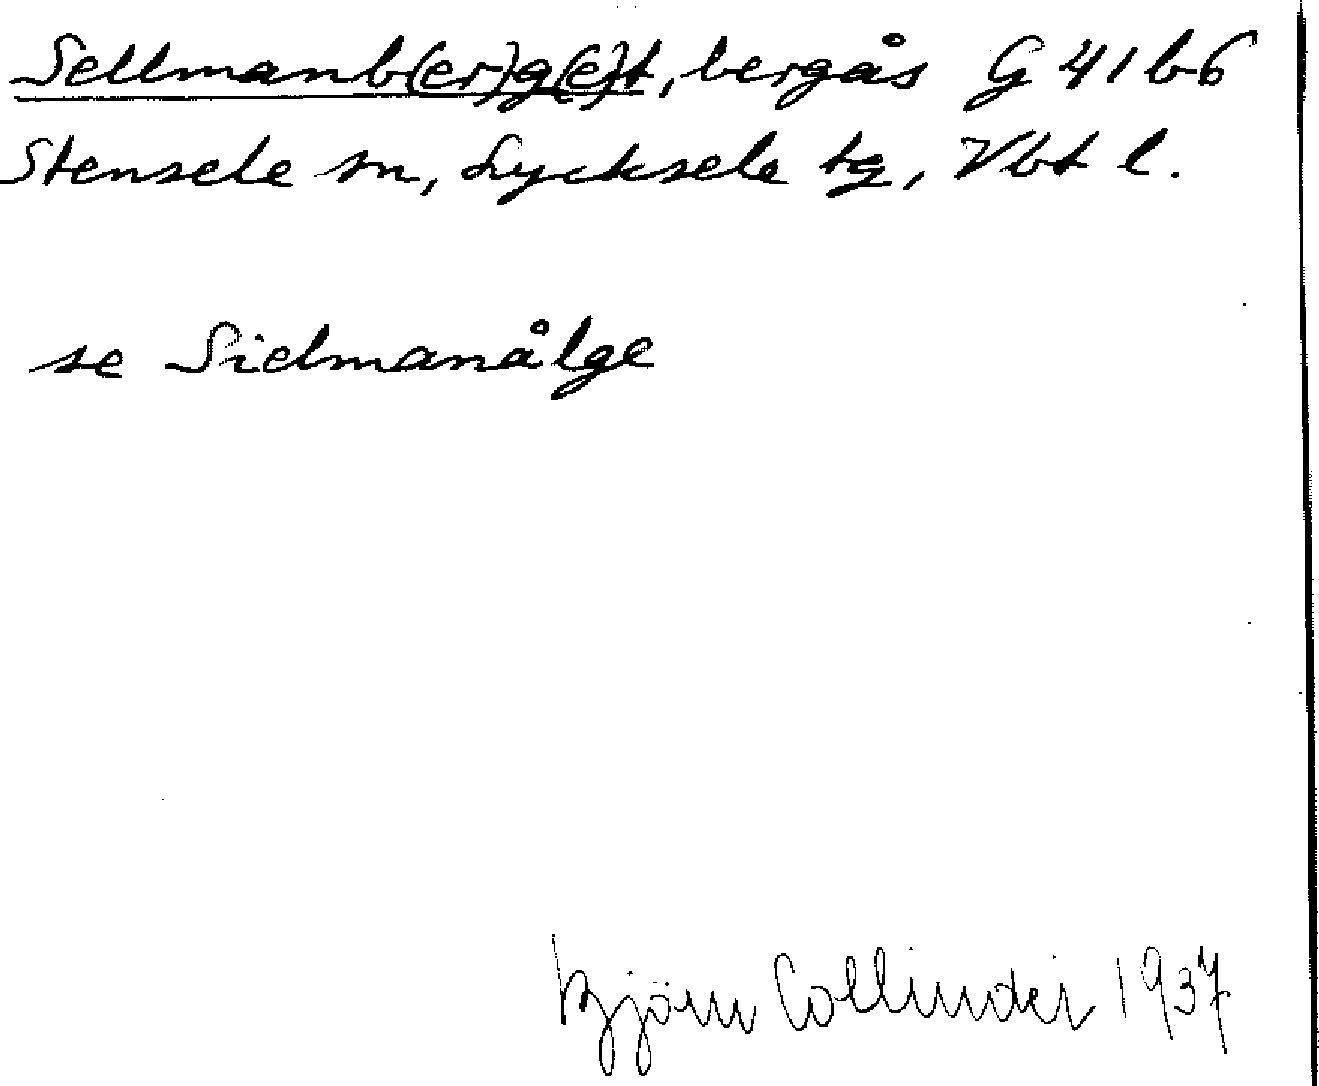 Sellmanb(er)g(e)t, bergås G 41 b 6
Stensele sn, Lycksele tg, Vbt l.
se Sielmanålge
Björn Collinder 1937